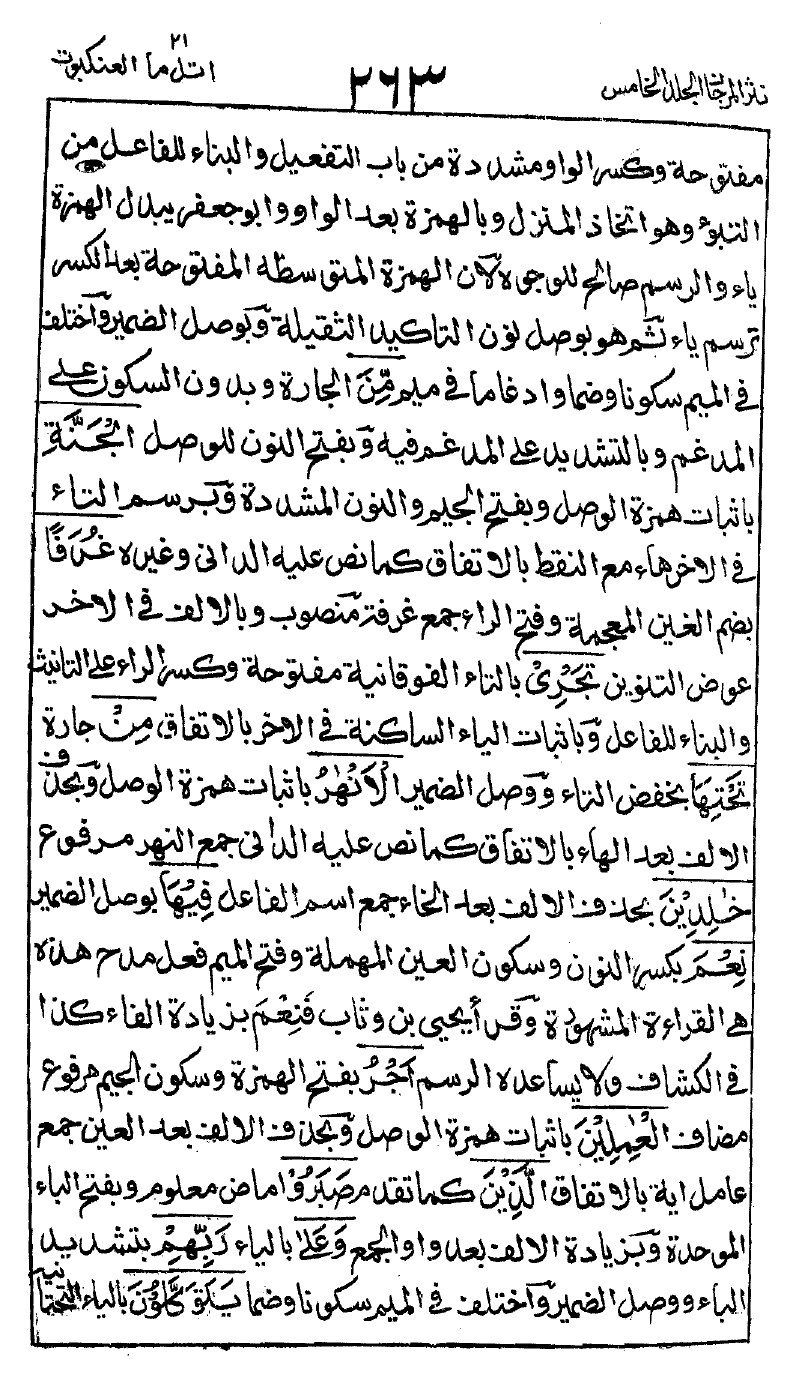 نثر المرجان المجلد الخامس ٢٦٣ اتل ما العنكبوت ٢١
مفتوحة وكسر الواو مشددة من باب التفعيل والبناء للفاعل من
التبوّء وهو اتخاذ المنزل وبالهمزة بعد الواو وابوجعفر يبدل الهمزة
ياء والرسم صالح للوجوه لان الهمزة المتوسطة المفتوحة بعد الكسر
ترسم ياء ثم هو بوصل نون التاكيد الثقيلة وبوصل الضمير واختلف
في الميم سكونا وضما وادغاما في ميم مِّنَ الجارة وبدون السكون على
المدغم وبالتشديد على المدغم فيه وبفتح النون للوصل الْجَنَّةِ
باثبات همزة الوصل وبفتح الجيم والنون المشددة وبرسم التاء
في الاخر هاء مع النقط بالاتفاق كما نص عليه الداني وغيره غُرَفًا
بضم الغين المعجمة وفتح الراء جمع غرفة منصوب وبالالف في الاخر
عوض التنوين تَجْرِيْ بالتاء الفوقانية مفتوحة وكسر الراء على التانيث
والبناء للفاعل وباثبات الياء الساكنة في الاخر بالاتفاق مِنْ جارة
تَحْتِهَا بخفض التاء ووصل الضمير الْاَنْهٰرُ باثبات همزة الوصل وبحذف
الالف بعد الهاء بالاتفاق كما نص عليه الداني جمع النهر مرفوع
خٰلِدِيْنَ بحذف الالف بعد الخاء جمع اسم الفاعل فِيْهَا بوصل الضمير
نِعْمَ بكسر النون وسكون العين المهملة وفتح الميم فعل مدح هذه
هي القراءة المشهورة وقرأ يحيى بن وثاب فَنِعْمَ بزيادة الفاء كذا
في الكشاف ولا يساعده الرسم اَجْرُ بفتح الهمزة وسكون الجيم مرفوع
مضاف الْعٰمِلِيْنَ باثبات همزة الوصل وبحذف الالف بعد العين جمع
عامل اية بالاتفاق الَّذِيْنَ كما تقدم صَبَرُوْا ماض معلوم وبفتح الباء
الموحدة وبزيادة الالف بعد واو الجمع وَعَلٰى بالياء رَبِّهِمْ بتشديد
الباء ووصل الضمير واختلف في الميم سكونا وضما يَتَوَكَّلُوْنَ بالياء التحتانية